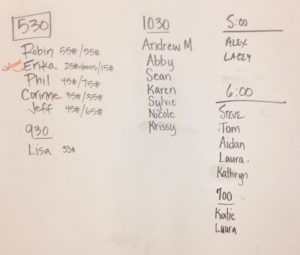 530
Robin 55#/35#
Erika 25#dbms/15#
Phil 45#/75#
Corinne 35#/35#
Jeff 45#/65#
930
Lisa 33#
1030
Andrew M
Abby
Sean
Karen
Sylvie
Nicole
Krissy
5:00
ALEX
LACEY
6:00
STEVE
Tom
Aidan
Laura
Kathryn
700
Katie
Laura